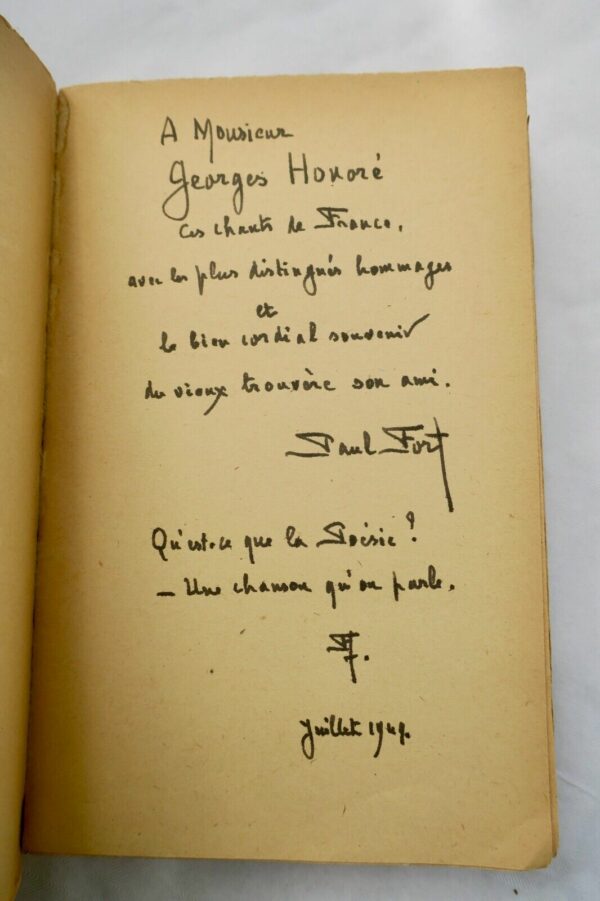 A Monsieur
Georges Honoré
Ces chants de France,
avec les plus distingués hommages
et
le bien cordial souvenir
du vieux trouvère son ami.
Paul Fort
Qu'est-ce que la Poésie ?
— Une chanson qu'on parle.
PF.
Juillet 1949.